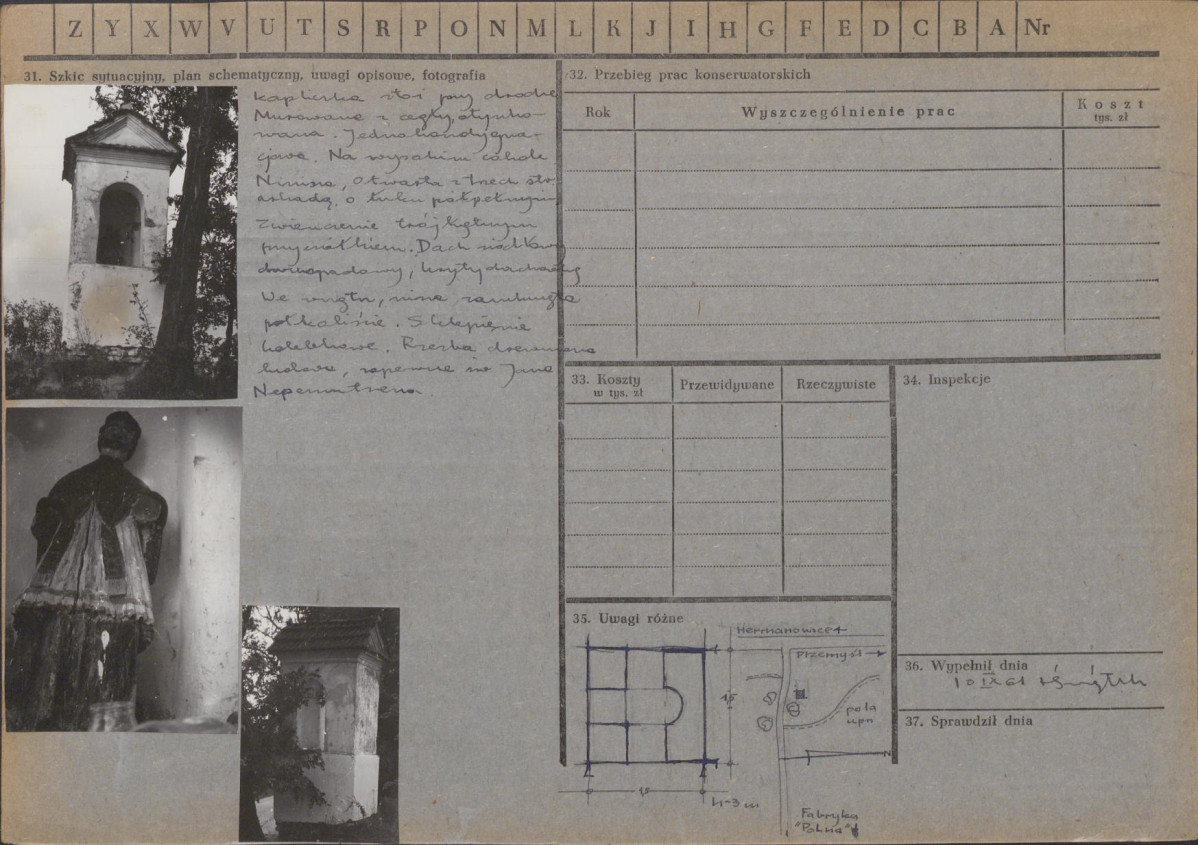 Z Y X W V U T S R P O N M L K J I H G F E D C B A Nr
31. Szkic sytuacyjny, plan schematyczny, uwagi opisowe, fotografia
kapliczka stoi przy drodze
Murowana z cegły, otynko-
wana. Jednokondygna-
cjowa. Na wysokim cokole
Nimsza, otwarta z trzech str.
arkadą, o łuku półpełnym
zwieńczenie trójkątnym
przyczółkiem. Dach siodłowy
dwuspadowy, kryty dachówką
We wnętrzu, nisza zamknięta
półkoliście. Sklepienie
kolebkowe. Rzeźba drewniana
ludowa, zapewne św Jana
Nepomucena
32. Przebieg prac konserwatorskich
Rok
Wyszczególnienie prac
Koszt
tys. zł
33. Koszty
w tys. zł
Przewidywane
Rzeczywiste
34. Inspekcje
35. Uwagi różne
Hermanowice
Przemyśl
pola
upr.
h-3 m
Fabryka
"Polna"
36. Wypełnił dnia
10 IX 61
37. Sprawdził dnia